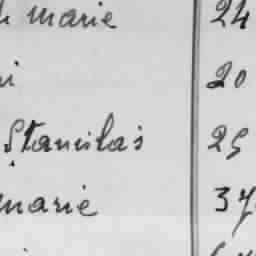 marie 24
i 20
Stanislas 25
marie 37